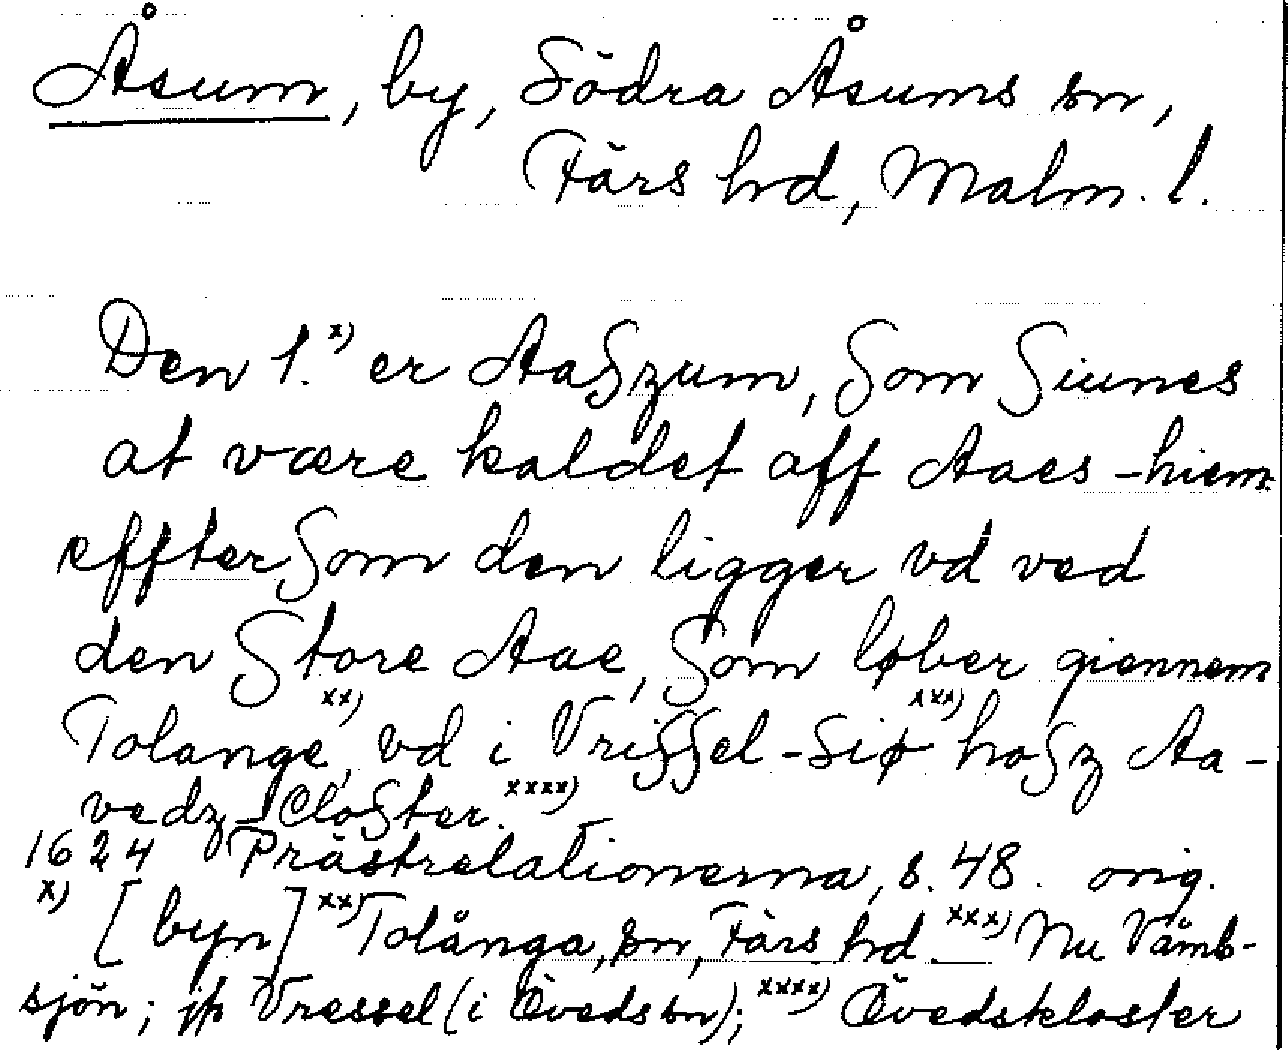 Åsum, by, Södra Åsums sn,
Färs hd, Malm. l.
Den 1.x) er Aaszum, som siunes
at være kaldet aff Aaes-hiem
efftersom den ligger vd ved
den Store Aae, som løber giennem
Tolange,xx) vd i Vrissel-siøxxx) hosz Aa-
vedz-Closter.xxxx)
1624 Prästrelationerna, s. 48. orig.
x) [byn] xx) Tolånga, sn, Färs hd. xxx) Nu Vämb-
sjön; jfr Vressel (i Öveds sn); xxxx) Övedskloster